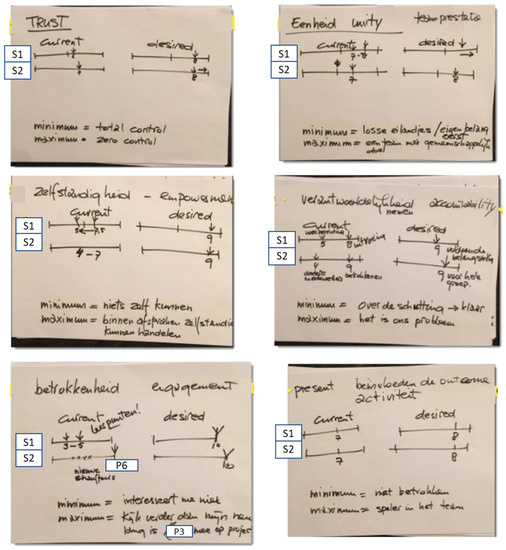 TRUST
current desired
S1 8
S2 7 8
minimum = total control
maximum = zero control
Eenheid unity teamprestatie
current desired
S1 7-8
S2 7 8
minimum = losse eilandjes / eigen belang eerst
maximum = een team met gemeenschappelijk doel
zelfstandigheid - empowerment
current desired
S1 5 7,5 9
S2 4 - 7 9
minimum = niets zelf kunnen
maximum = binnen afspraken zelfstandig
kunnen handelen
verantwoordelijkheid accountability
nemen
current desired
S1 5 8 9
S2 4 9 9
voor hele
groep.
minimum = over de schutting → klaar
maximum = het is ons probleem
betrokkenheid engagement
current leerpunten! desired
S1 3 - 5 10
S2 10
nieuwe
P6
minimum = interesseert me niet
maximum = kijk verder dan mijn neus
lang is P3 mee op project
present beïnvloeden de outcome
activiteit
current desired
S1 7 8
S2 7 8
minimum = niet betrokken
maximum = speler in het team